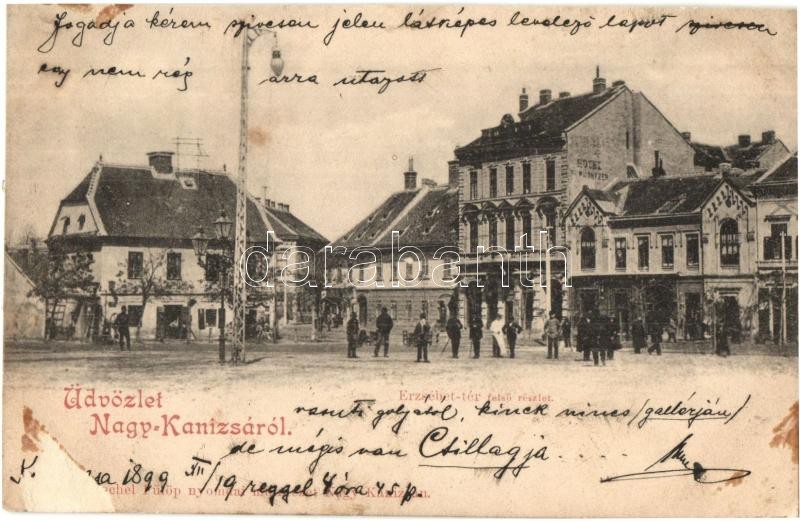 Fogadja kérem szivesen jelen látképes levelező lapot szivesen
egy nem rég arra utazott
HOTEL
darabanth.com
Üdvözlet
Nagy-Kanizsáról.
Erzsébet-tér felső részlet.
vasuti golyatol, kinek nincs (gallérján)
de mégis van Csillagja....
1899 XII/19 reggel 4 óra 45 p
Fülöp nyomdai Nagy-Kanizsán.